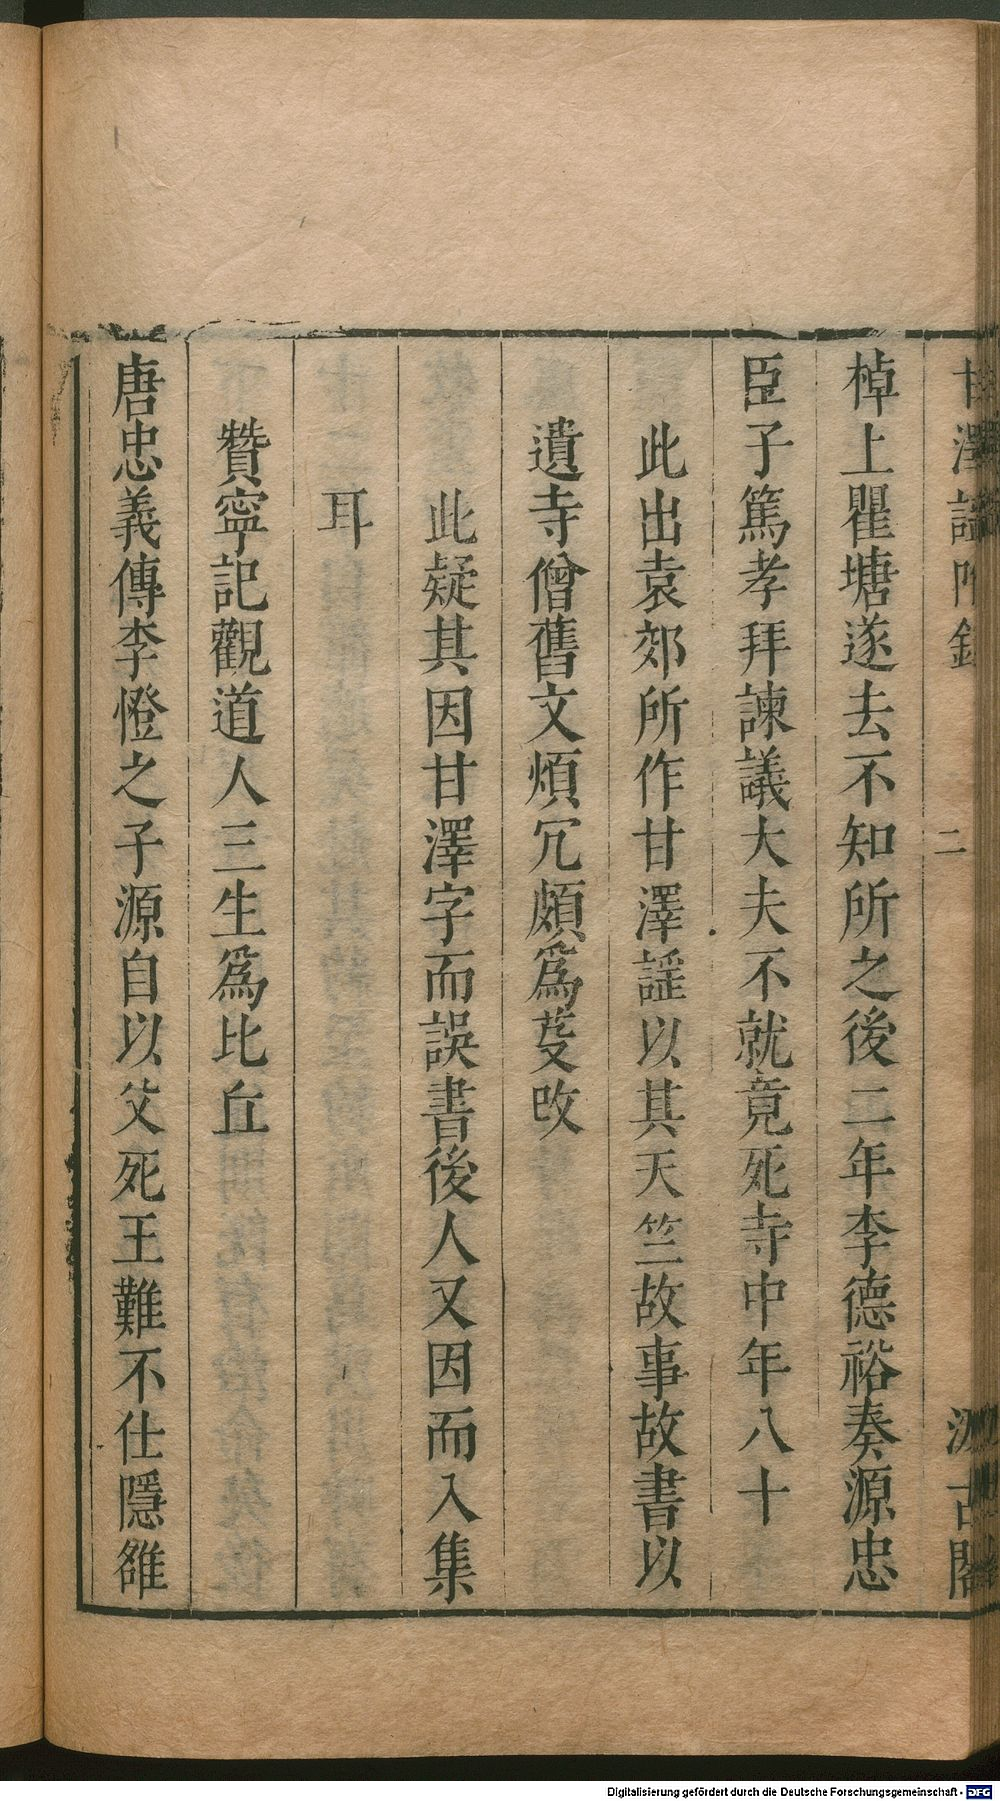 甘澤謡附錄 二 汲古閣
棹上瞿塘遂去不知所之後二年李德裕奏源忠
臣子篤孝拜諫議大夫不就竟死寺中年八十
此出袁郊所作甘澤謡以其天竺故事故書以
遺寺僧舊文煩冗頗爲芟改
此疑其因甘澤字而誤書後人又因而入集
耳
贊寧記觀道人三生爲比丘
唐忠義傳李憕之子源自以父死王難不仕隱雒
Digitalisierung gefördert durch die Deutsche Forschungsgemeinschaft - DFG